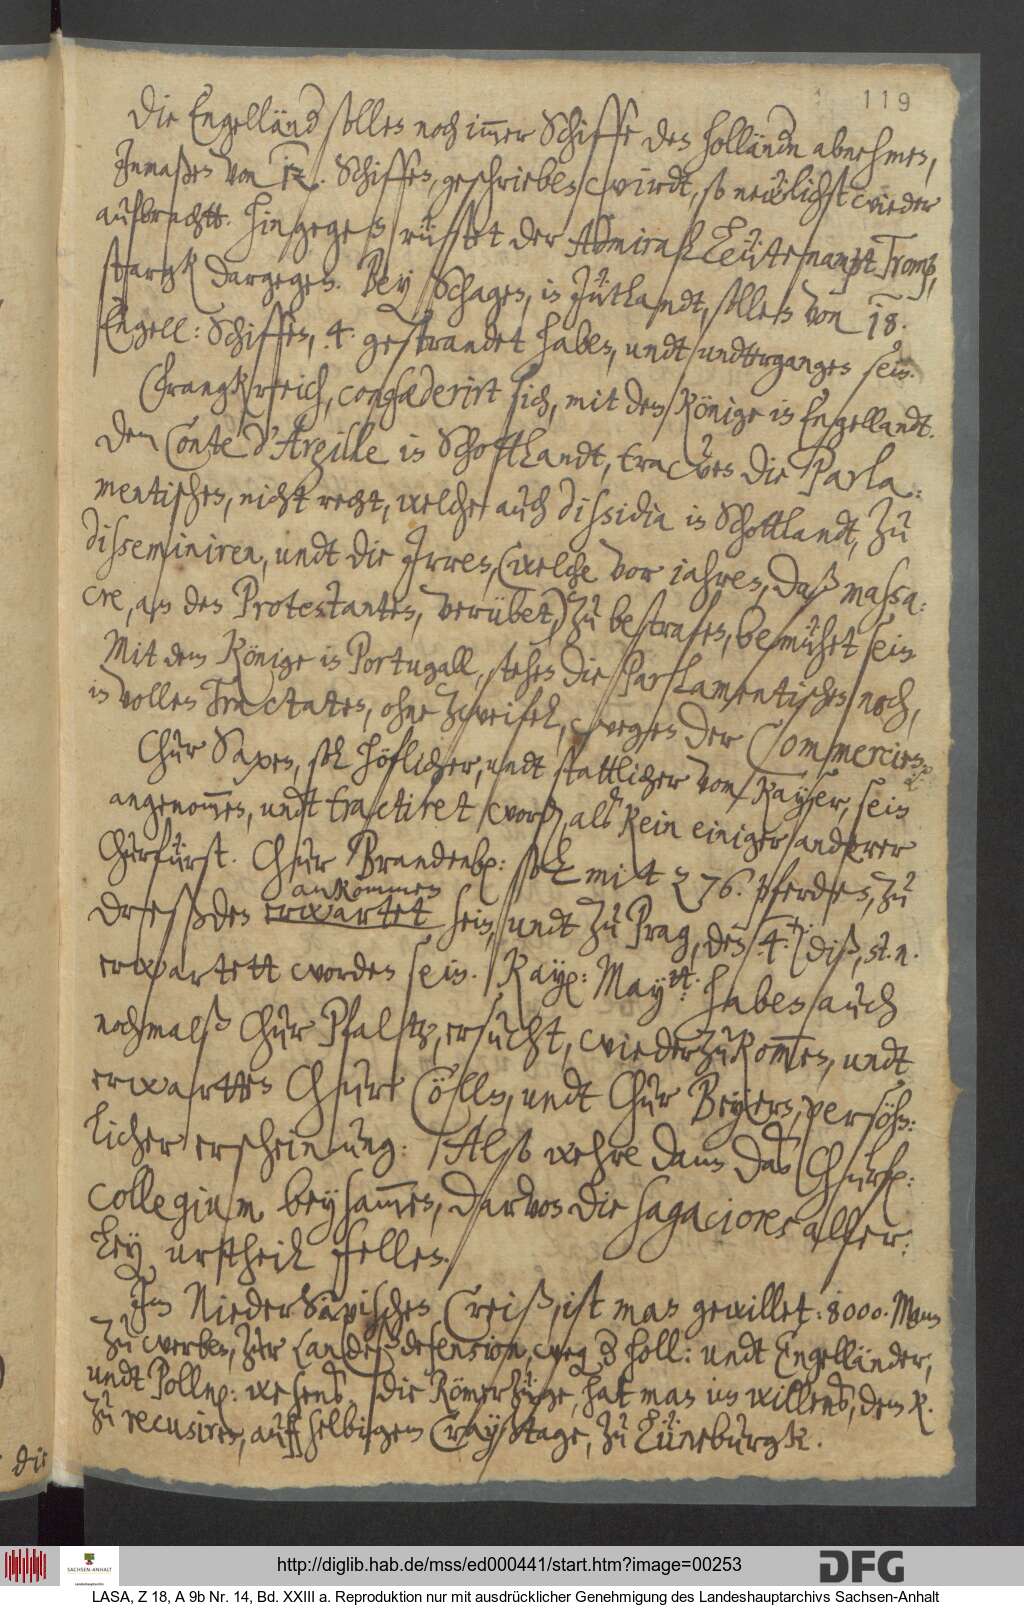 119
Die Engelländer sollen noch immer Schiffe den Holländern abnehmen,
Inmaßen von 12. Schiffen, geschrieben wirdt, so newlichst wieder
aufbracht. Hingegen rüstet der Admiral Leütenampt Tromp,
starck dargegen. Bey Schagen, in Jütlandt, sollen von 18.
Engell: Schiffen, 4. gestrandet haben, undt undterganges sein.
Franckreich, confœderirt sich, mit dem Könige in Engellandt.
Dem Conte d'Argille in Schottlandt, trawen die Parla-
mentischen, nicht recht, welche auch dissidia in Schottlandt, zu
disseminiren, undt die Irren, (welche vor iahren, daß massa-
cre, an den Protestanten, verübet) zu bestrafen, bemühet sein
Mit dem Könige in Portugall, stehen die Parlamentischen noch,
in vollen Tractaten, ohne zweifel, wegen der Commercien.
Chur Saxen, sol höflicher, undt stattlicher vom Kayser, sein
angenommen, undt tractiret worden, als kein einiger anderer
Churfürst. Chur Brandenb: soll mit 276. pferden, zu
ankommen
Dresßden erwartet sein, undt zu Prag, den 4. diß, st. n.
erwartett worden sein. Kay: Maytt: haben auch
nochmalß Chur Pfaltz, ersucht, wiederzukommen, undt
erwartten Chur Cölln, undt Chur Beyern, persöhn-
licher erscheinung: Also wehre dann das Churf:
collegium beysammen, darvon die sagaciores aller-
ley urtheil fellen.
Im NiederSäxischen Creiß, ist man gewillet: 8000. Mann
zu werben, zur Landeßdefension, weg. d. Holl: undt Engelländer,
undt Polln: wesens. die Römerzüge, hat man im willens, dem K.
zu recusiren, auff selbigem Crayßtage, zu Lüneburgk.
die
http://diglib.hab.de/mss/ed000441/start.htm?image=00253
DFG
SACHSEN-ANHALT
LASA, Z 18, A 9b Nr. 14, Bd. XXIII a. Reproduktion nur mit ausdrücklicher Genehmigung des Landeshauptarchivs Sachsen-Anhalt